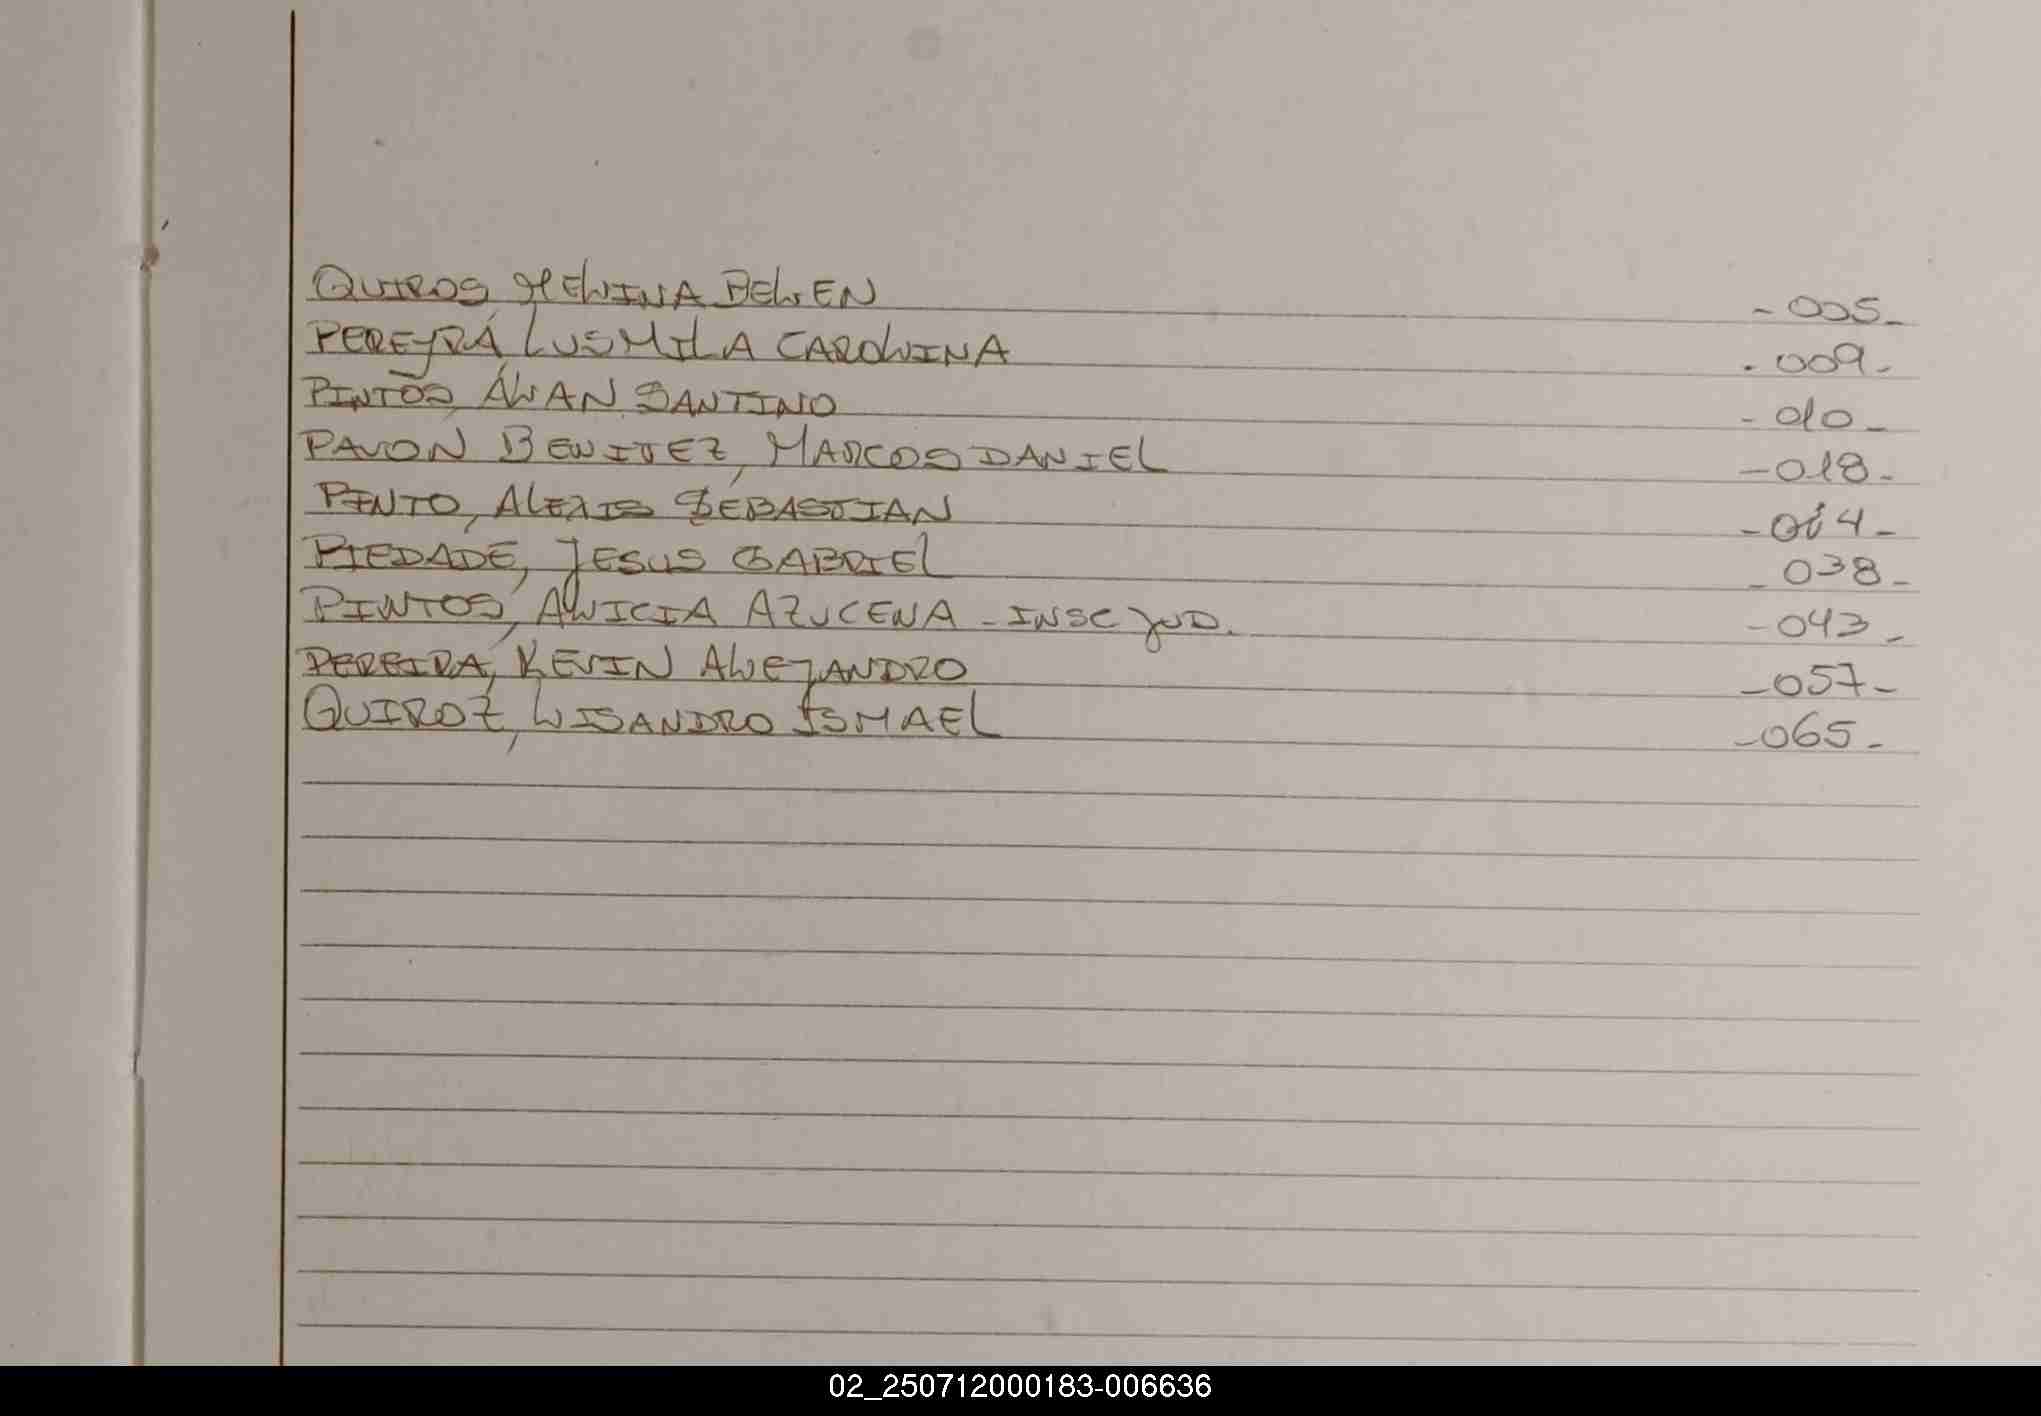 QUIROS, MELINA BELEN -005-
PEREYRA, LUSMILA CAROLINA -009-
PINTOS, ALAN SANTINO -010-
PAVON BENITEZ, MARCOS DANIEL -018-
PINTO, ALEXIS SEBASTIAN -014-
PIEDADE, JESUS GABRIEL -038-
PINTOS, ALICIA AZUCENA - INSC JUD. -043-
PEREIRA, KEVIN ALEJANDRO -057-
QUIROZ, LISANDRO ISMAEL -065-
02_250712000183-006636